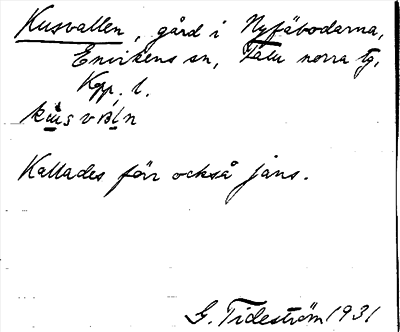 Kusvallen, gård i Nyfäbodarna,
Envikens sn, Falu norra tg,
Kopp. l.
Kallades förr också jäns.
G. Tideström 1931